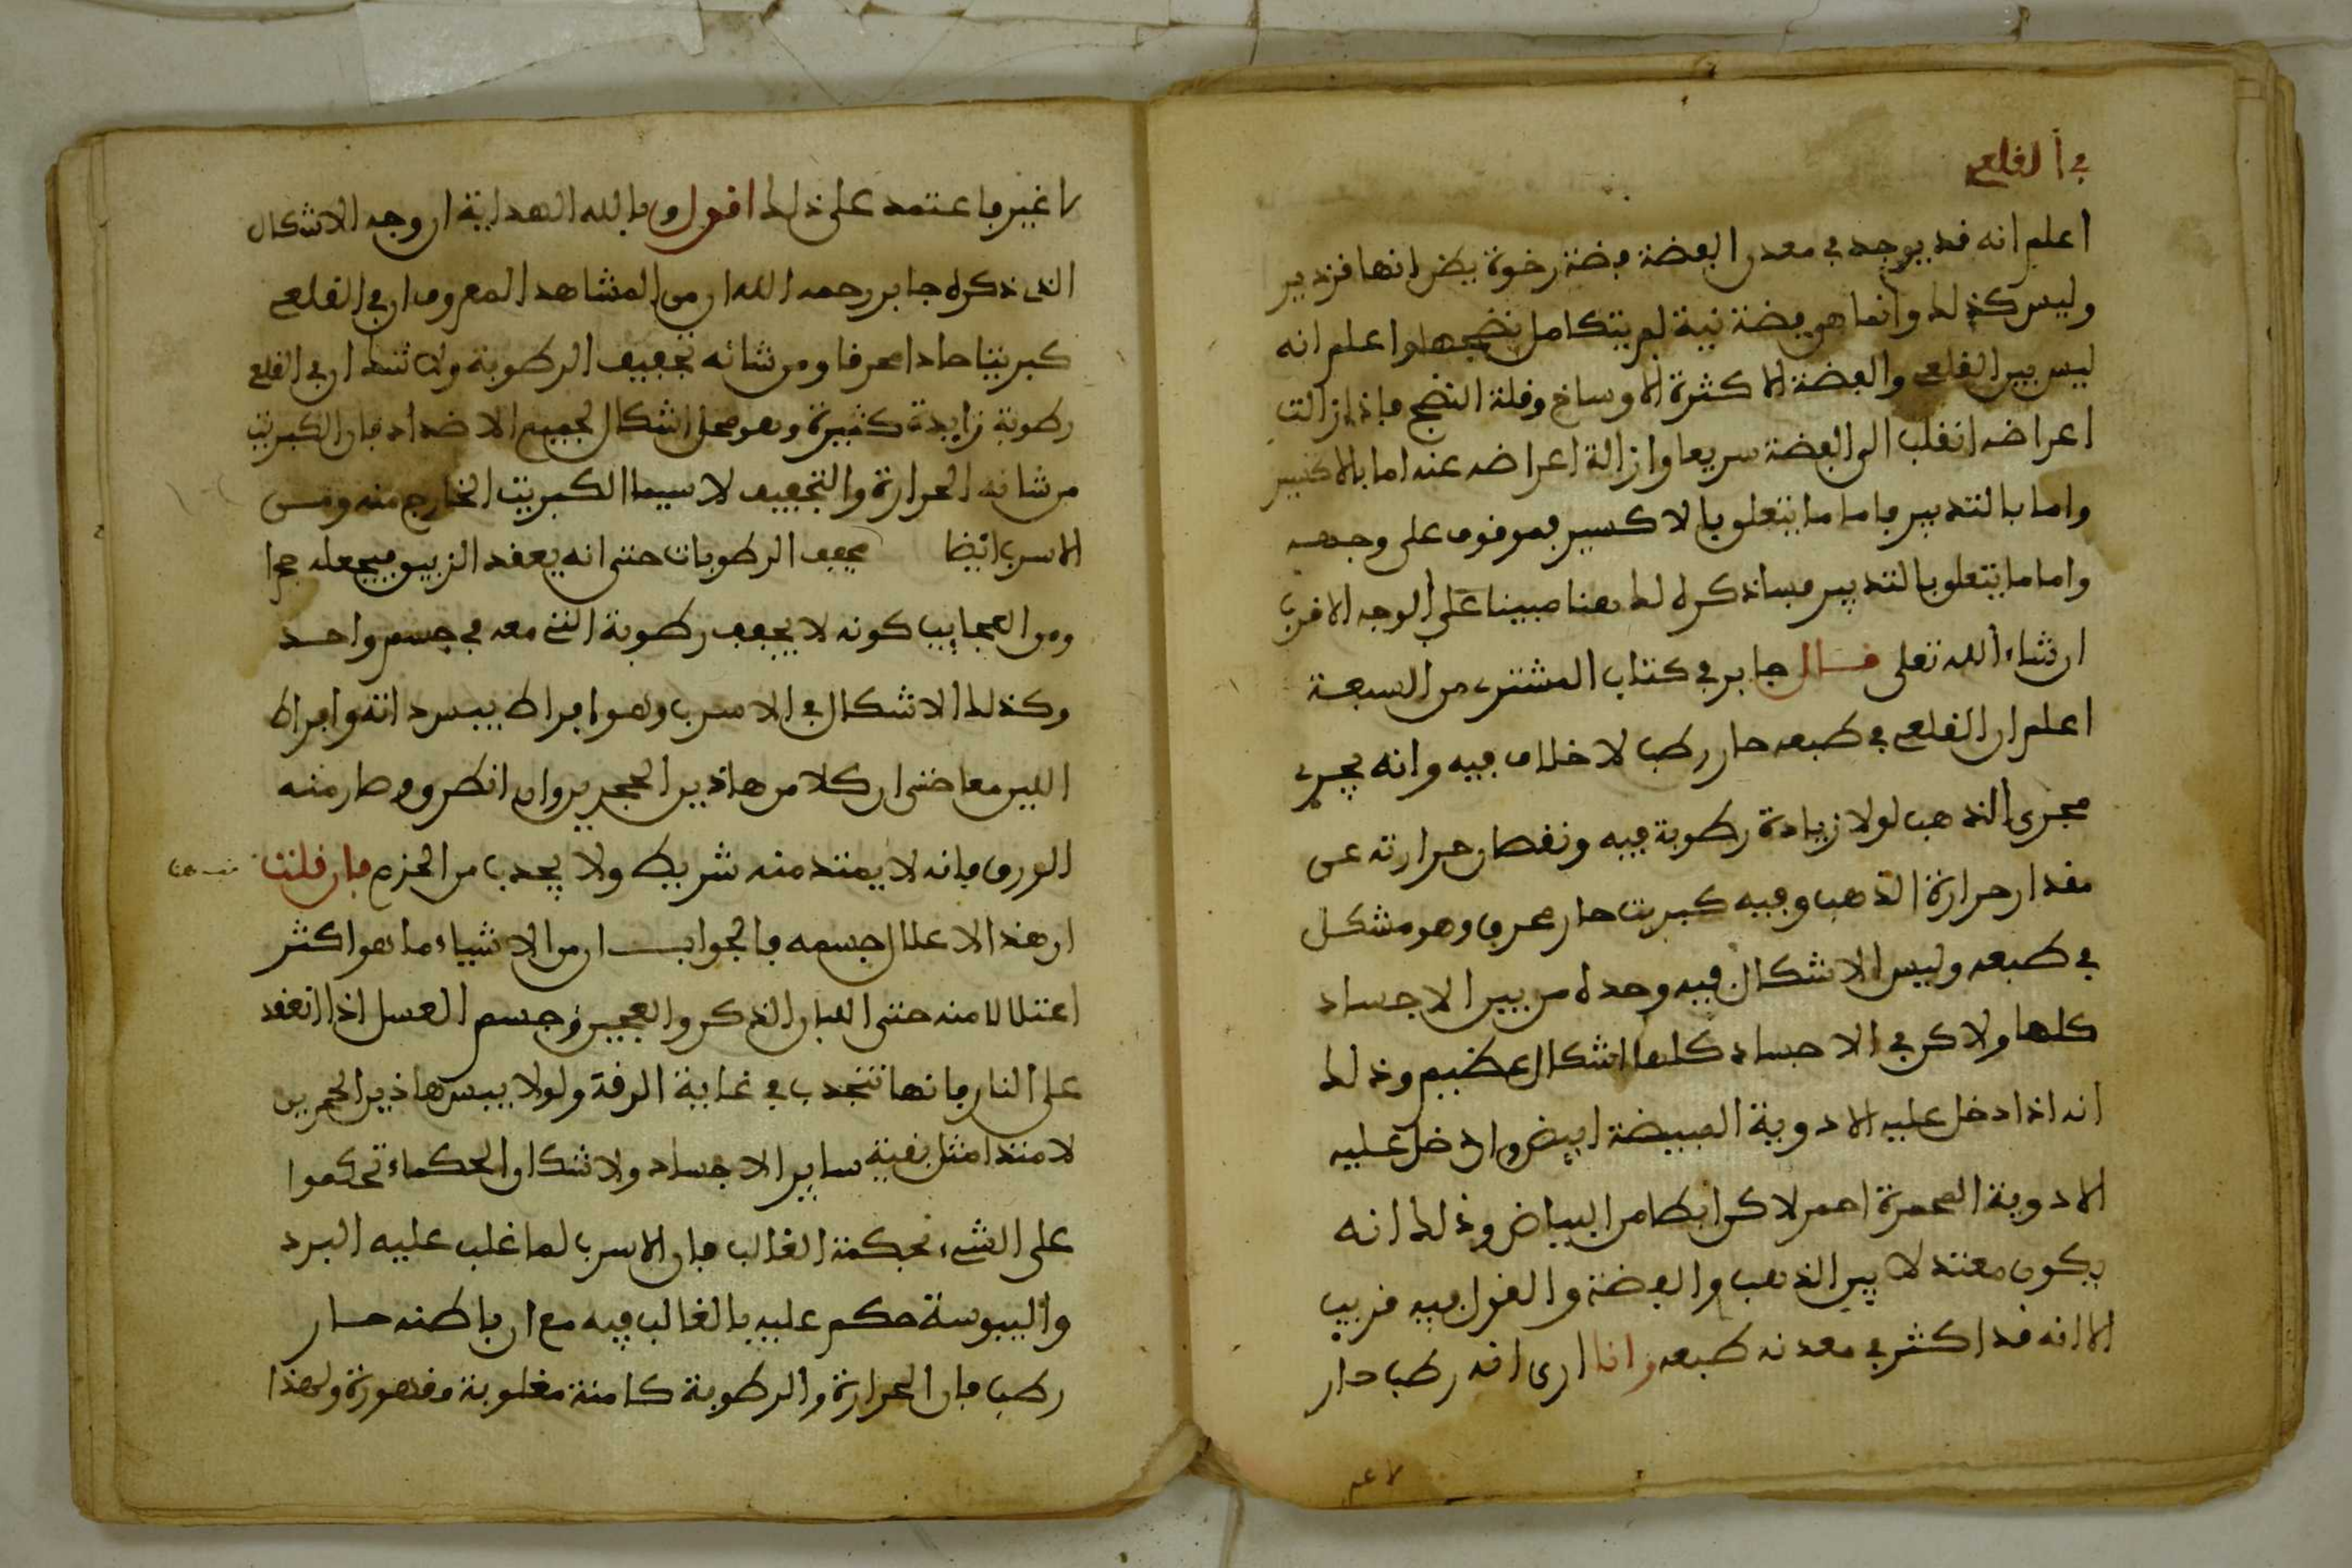 في القلعي
اعلم انه قد يوجد في معدن الفضة فضة رخوة يظن انها قزدير
وليس كذلك وانما هي فضة نية لم يتكامل نضجها واعلم انه
ليس بين القلعي والفضة الا كثرة الاوساخ وقلة النضج فاذا زالت
اعراضه انقلب الى الفضة سريعا وازالة اعراضه عنه اما بالاكسير
واما بالتدبير فاما ما يتعلق بالاكسير فموقوف على وجهه
واما ما يتعلق بالتدبير فساذكره لك هنا مبينا على الوجه الاقرب
ان شاء الله تعلى قال جابر في كتاب المشترى من السبعة
اعلم ان القلعي في طبعه حار رطب لا خلاف فيه وانه يجرى
مجرى الذهب لولا زيادة رطوبة فيه ونقصان حرارته عن
مقدار حرارة الذهب وفيه كبريت حار محرق وهو مشكل
في طبعه وليس الاشكال فيه وحده من بين الاجساد
كلها ولاكن في الاجساد كلها اشكال عظيم وذلك
انه اذا دخل عليه الادوية المبيضة ابيض وان دخل عليه
الادوية المحمرة احمر لاكن ابطا من البياض وذلك انه
يكون معتدلا بين الذهب والفضة والقول فيه قريب
الا انه قد اكثر في معدنه طبعه وانا ارى انه رطب حار
لا غير
لا غير فاعتمد على ذلك اقول وبالله الهداية ان وجه الاشكال
الذى ذكره جابر رحمه الله ان من المشاهد المعروف ان في القلعي
كبريتا حادا محرقا ومن شانه تجفيف الرطوبة ولا شك ان في القلعي
رطوبة زايدة كثيرة وهو محل اشكال لجميع الاضداد فان الكبريت
من شانه الحرارة والتجفيف لاسيما الكبريت الخارج منه ومن
الاسرب ايضا يجفف الرطوبات حتى انه يعقد الزيبق فيجعله حجرا
ومن العجايب كونه لا يجفف رطوبة التى معه في جسم واحد
وكذلك الاشكال في الاسرب وهو افراط يبس ذاته وافراط
اللين معا حتى ان كلا من هاذين الحجرين وان انطرق وصار منه
الورق فانه لا يمتد منه شريط ولا يجدب من الخزم فان قلت
ان هذا الاعلال جسمه فالجواب ان من الاشياء ما هو اكثر
اعتلالا منه حتى اللبان الذكر والعجين وجسم العسل اذا انعقد
على النار فانها تنجدب في غاية الرقة ولولا يبس هاذين الحجرين
لامتدا مثل بقية ساير الاجساد ولا شك ان الحكماء تحكموا
على الشىء بحكمة الغالب فان الاسرب لما غلب عليه البرد
واليبوسة حكم عليه بالغالب فيه مع ان باطنه حار
رطب فان الحرارة والرطوبة كامنة مغلوبة مقهورة ولهذا